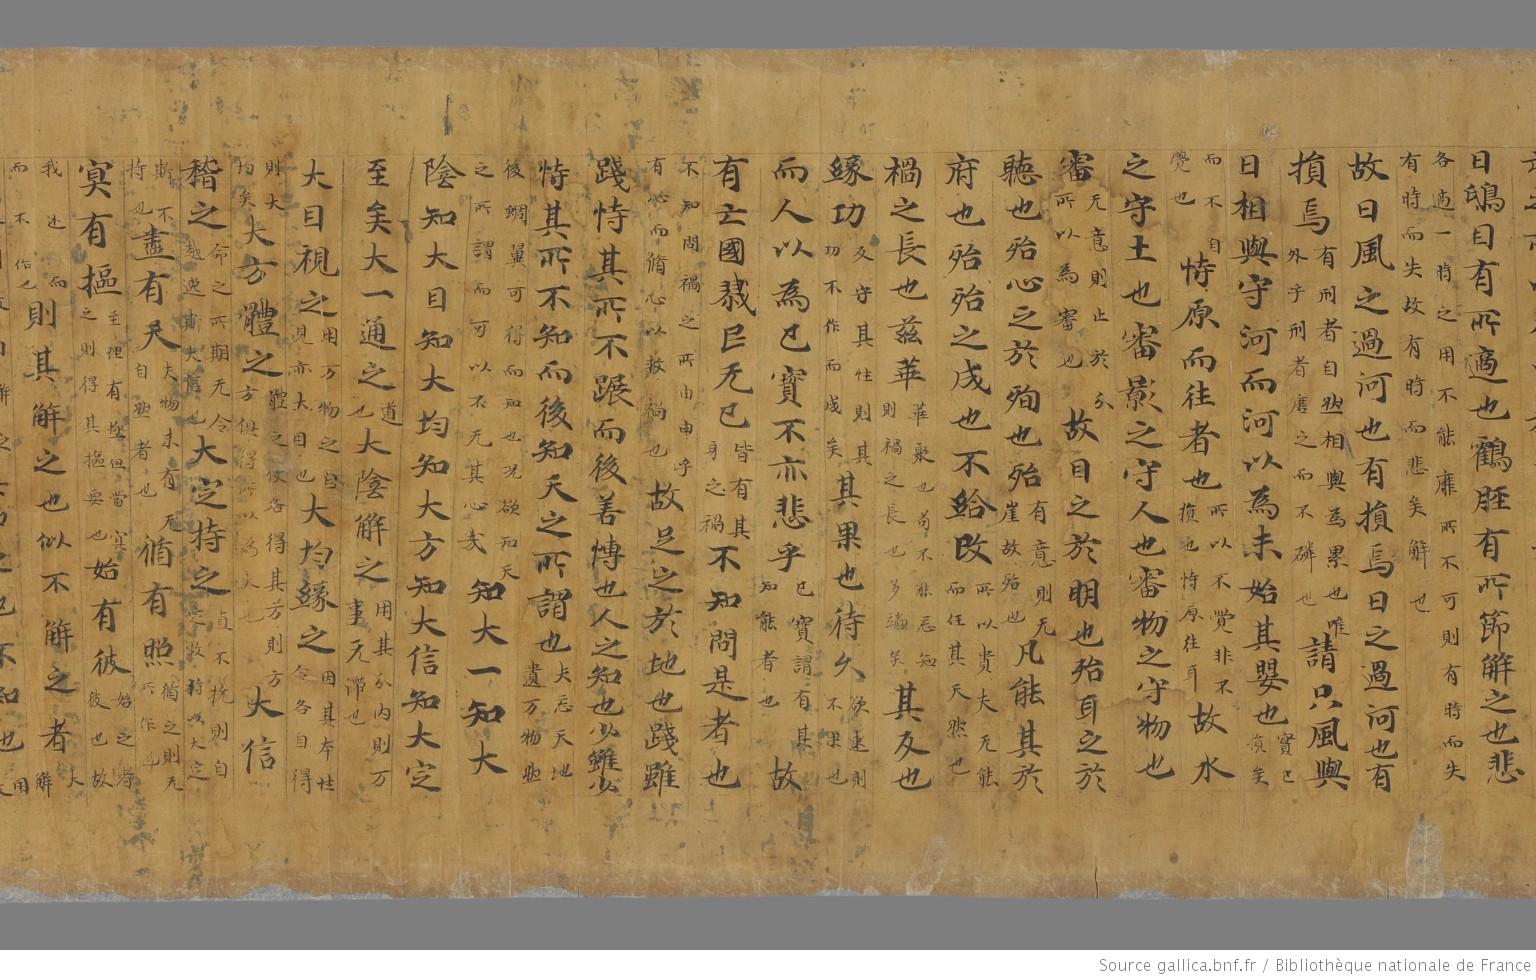 曰鴟目有所適也鶴脛有所節解之也悲
各適一時之用不能靡所不可則有時而失
有時而失故有時而悲矣解也
故曰風之過河也有損焉日之過河也有
損焉有形者自然相與為累也唯外乎形者磨之而不磷也請只風與
日相與守河而河以為未始其嬰也實已損矣
而不自覺也恃原而往者也所以不覺非不損也恃原往耳故水
之守土也審影之守人也審物之守物也
審无意則止於分所以為審也故目之於明也殆耳之於
聽也殆心之於殉也殆有意則无崖故殆也凡能其於
府也殆殆之成也不給改所以貴夫无能而任其天然也
禍之長也茲萃萃聚也苟不能忘知則禍之長也多端矣其反也
緣功反守其性則其功不作而成矣其果也待久欲速則不果也
而人以為己寶不亦悲乎己寶謂有其知能者也故
有亡國戮民无已皆有其身之禍不知問是者也
不知問禍之所由由乎有心而脩心以救禍也故足之於地也踐雖
踐恃其所不蹍而後善博也人之知也少雖少
恃其所不知而後知天之所謂也夫忘天地遺万物然
後蜩翼可得而知也況欲知天之所謂而可以不无其心哉知大一知大
陰知大目知大均知大方知大信知大定
至矣大一通之道也大陰解之用其分内則万事无滯也
大目視之用万物之目見亦大目也大均緣之因其本性令各自得
則大均矣大方體之體之使各得其方則方方俱得所以為大方也大信
稽之命之所期无令越逸斯大信也大定持之真不撓則自定故持以大定
斯不持也盡有天夫物未有无自然者也循有照循之則无所作也
冥有樞至理有極但當冥之則得其樞要也始有彼始之者彼也故
我述而而不作也則其解之也似不解之者